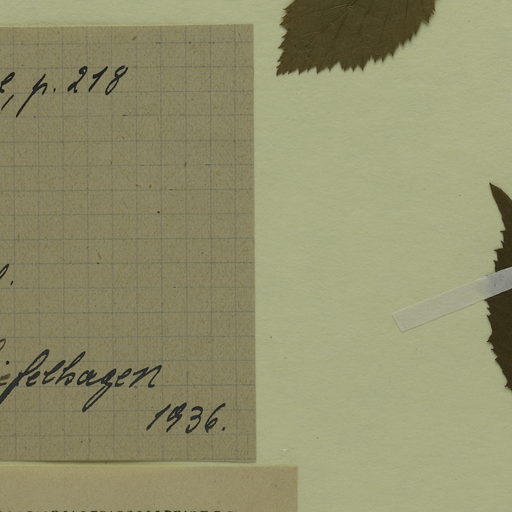 p. 218
iefelhagen
1936.